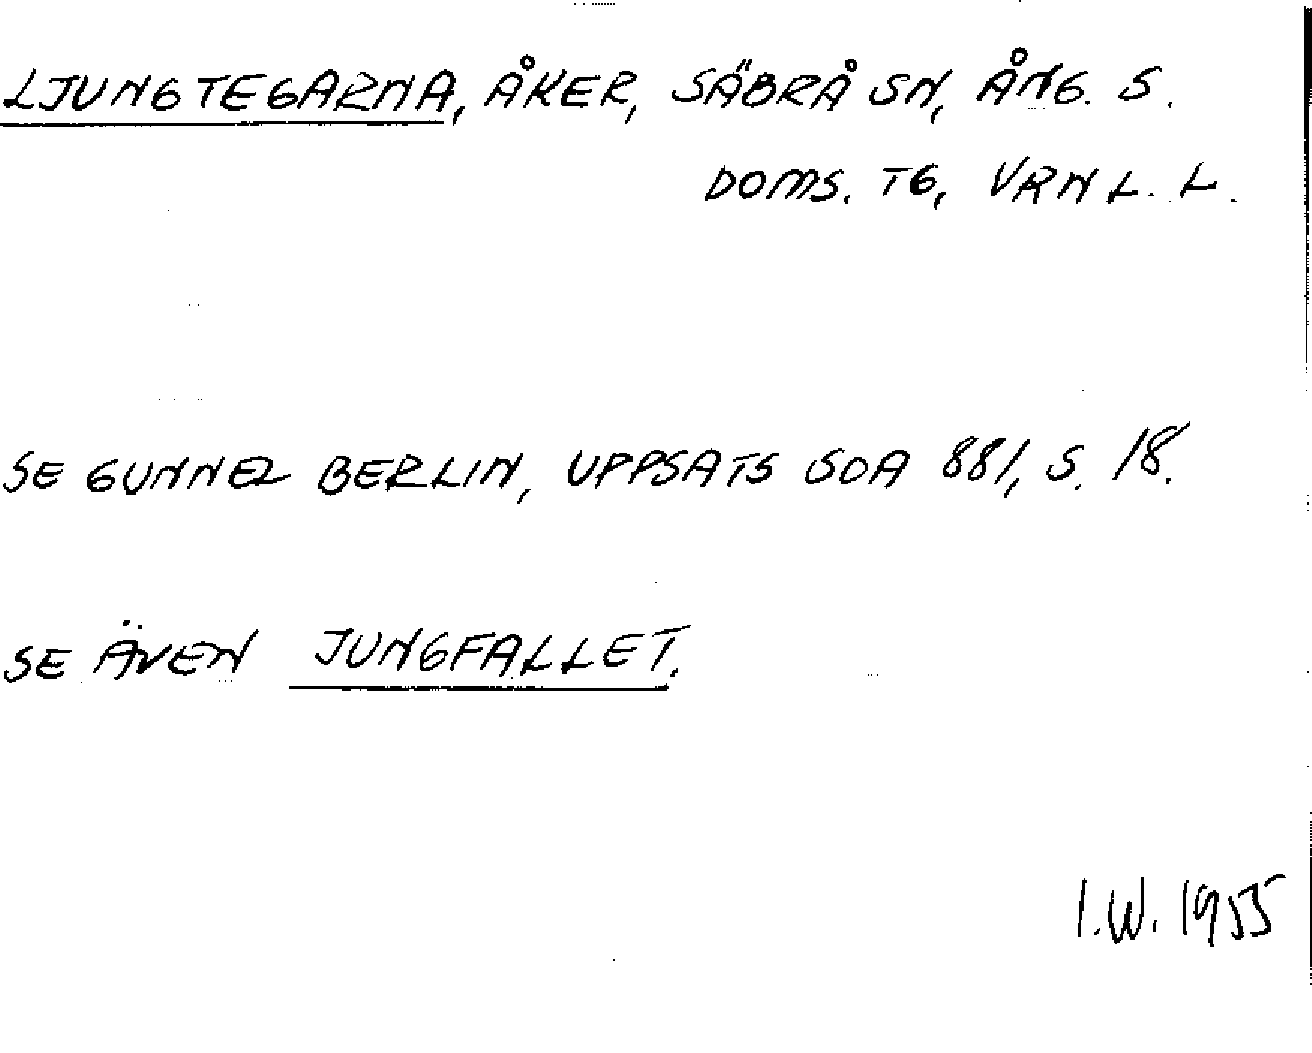 LJUNGTEGARNA, ÅKER, SÄBRÅ SN, ÅNG. S.
DOMS. TG, VRNL. L.
SE GUNNEL BERLIN, UPPSATS SOA 881, S. 18.
SE ÄVEN JUNGFALLET.
I.W. 1955